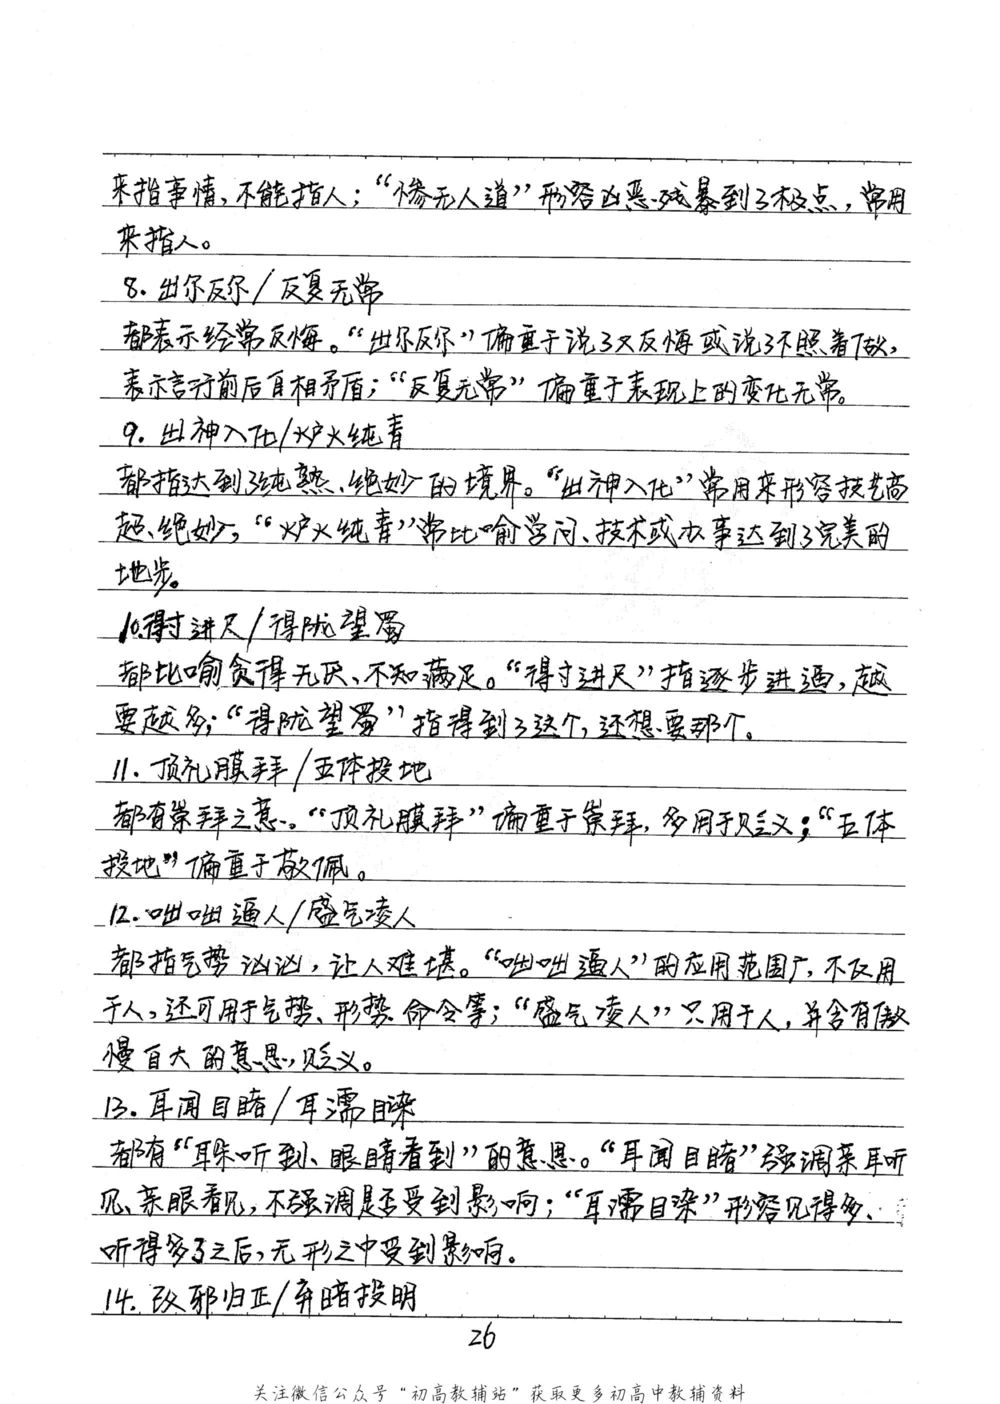 来指事情，不能指人；“惨无人道”形容凶恶残暴到了极点，常用
来指人。
8. 出尔反尔/反复无常
都表示经常反悔。“出尔反尔”偏重于说了又反悔或说了不照着做，
表示言行前后自相矛盾；“反复无常”偏重于表现上的变化无常。
9. 出神入化/炉火纯青
都指达到了纯熟、绝妙的境界。“出神入化”常用来形容技艺高
超、绝妙，“炉火纯青”常比喻学问、技术或办事达到了完美的
地步。
10.得寸进尺/得陇望蜀
都比喻贪得无厌、不知满足。“得寸进尺”指逐步进逼，越
要越多；“得陇望蜀”指得到了这个，还想要那个。
11. 顶礼膜拜/五体投地
都有崇拜之意。“顶礼膜拜”偏重于崇拜，多用于贬义；“五体
投地”偏重于敬佩。
12.咄咄逼人/盛气凌人
都指气势汹汹，让人难堪。“咄咄逼人”的应用范围广，不仅用
于人，还可用于气势、形势、命令等；“盛气凌人”只用于人，并含有傲
慢自大的意思，贬义。
13. 耳闻目睹/耳濡目染
都有“耳朵听到、眼睛看到”的意思。“耳闻目睹”强调亲耳听
见、亲眼看见，不强调是否受到影响；“耳濡目染”形容见得多、
听得多了之后，无形之中受到影响。
14. 改邪归正/弃暗投明
26
关注微信公众号“初高教辅站”获取更多初高中教辅资料